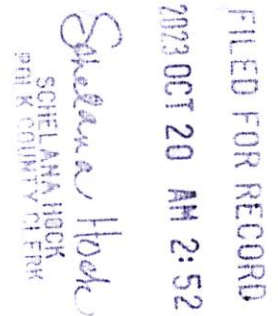 FILED FOR RECORD
2023 OCT 20 AM 2:52
Schelana Hock
SCHELANA HOCK
POLK COUNTY CLERK